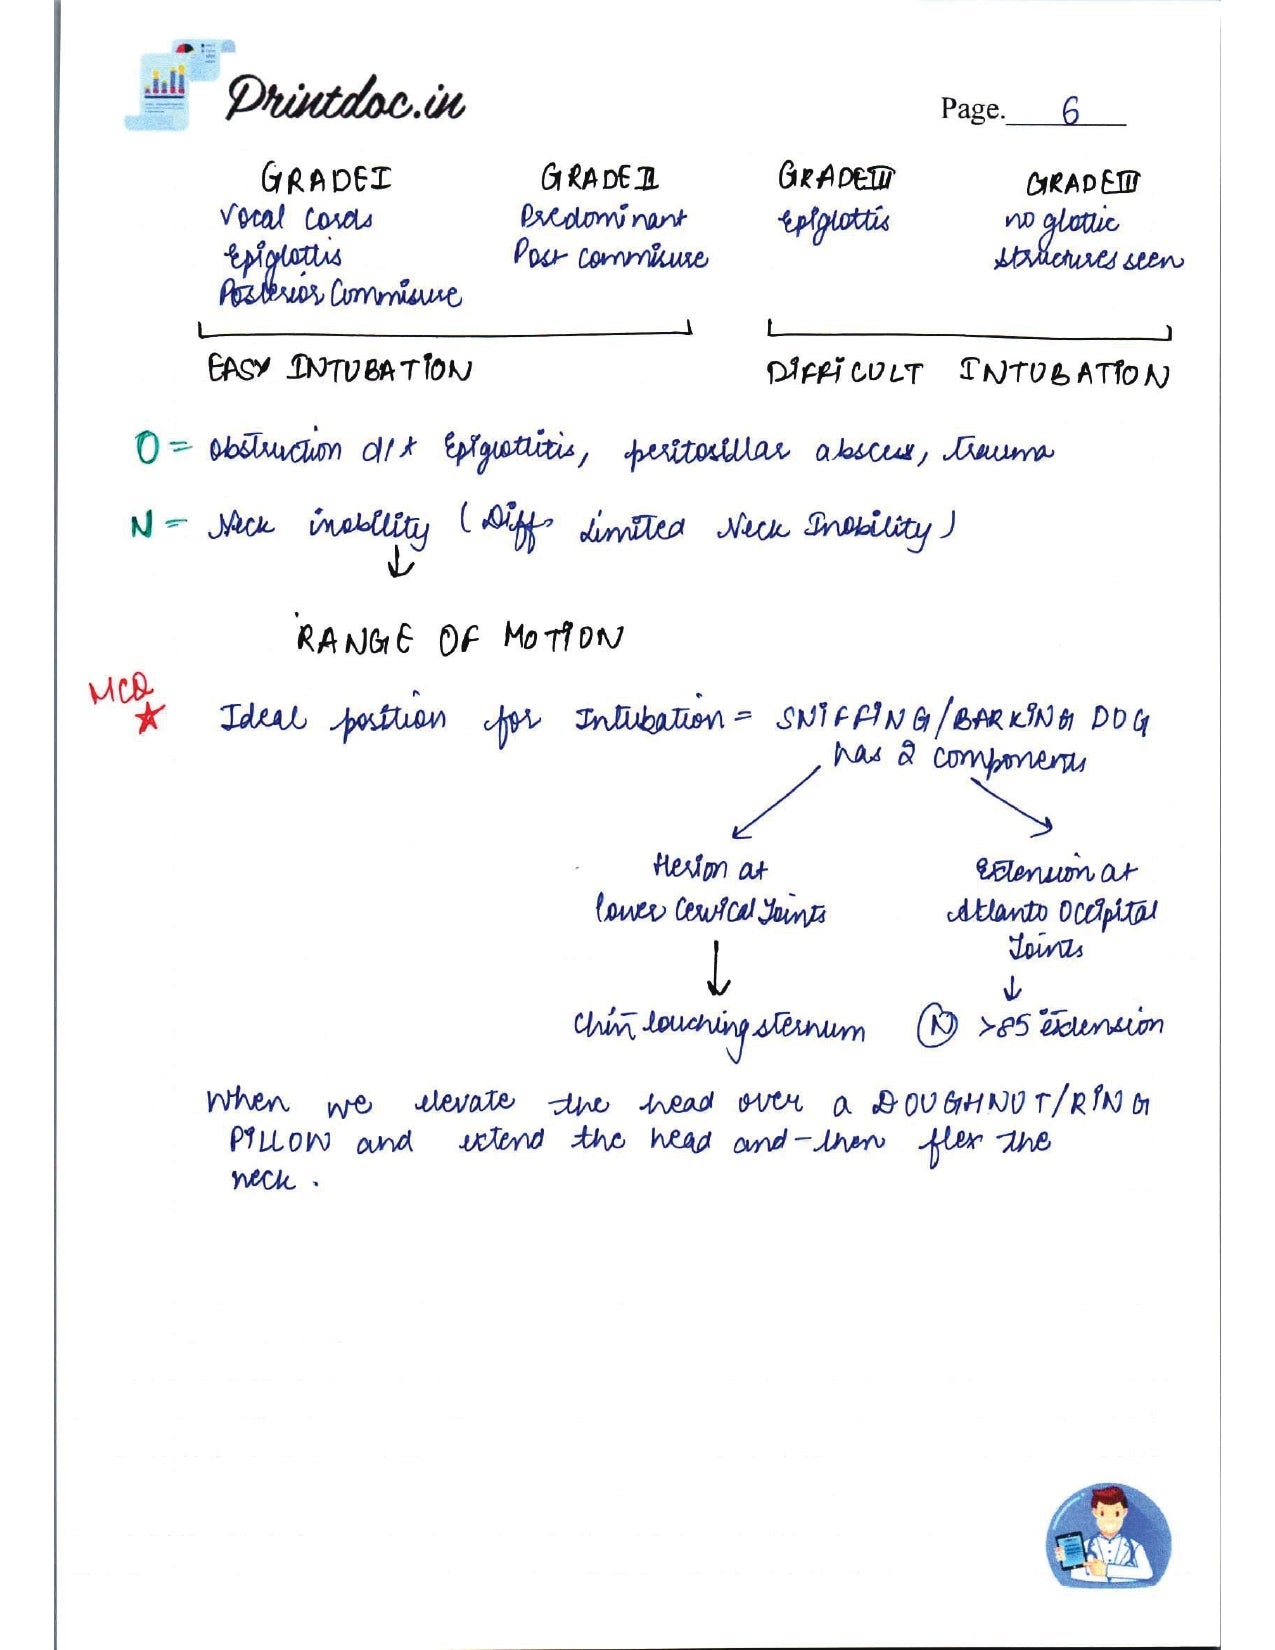 Printdoc.in
Page. 6
GRADE I GRADE II GRADE III GRADE III
Vocal cords Predominant Epiglottis no glottic
Epiglottis Post commisure structures seen
Posterior Commisure
EASY INTUBATION DIFFICULT INTUBATION
O = Obstruction d/t Epiglottitis, peritosillar abscess, trauma
N = Neck inobility (Diff. Limited Neck Inobility)
RANGE OF MOTION
MCQ
Ideal position for Intubation = SNIFFING/BARKING DOG
has 2 components
flexion at Extension at
lower Cervical Joints Atlanto Occipital
Joints
Chin touching sternum N >85 extension
When we elevate the head over a DOUGHNUT/RING
PILLOW and extend the head and then flex the
neck.